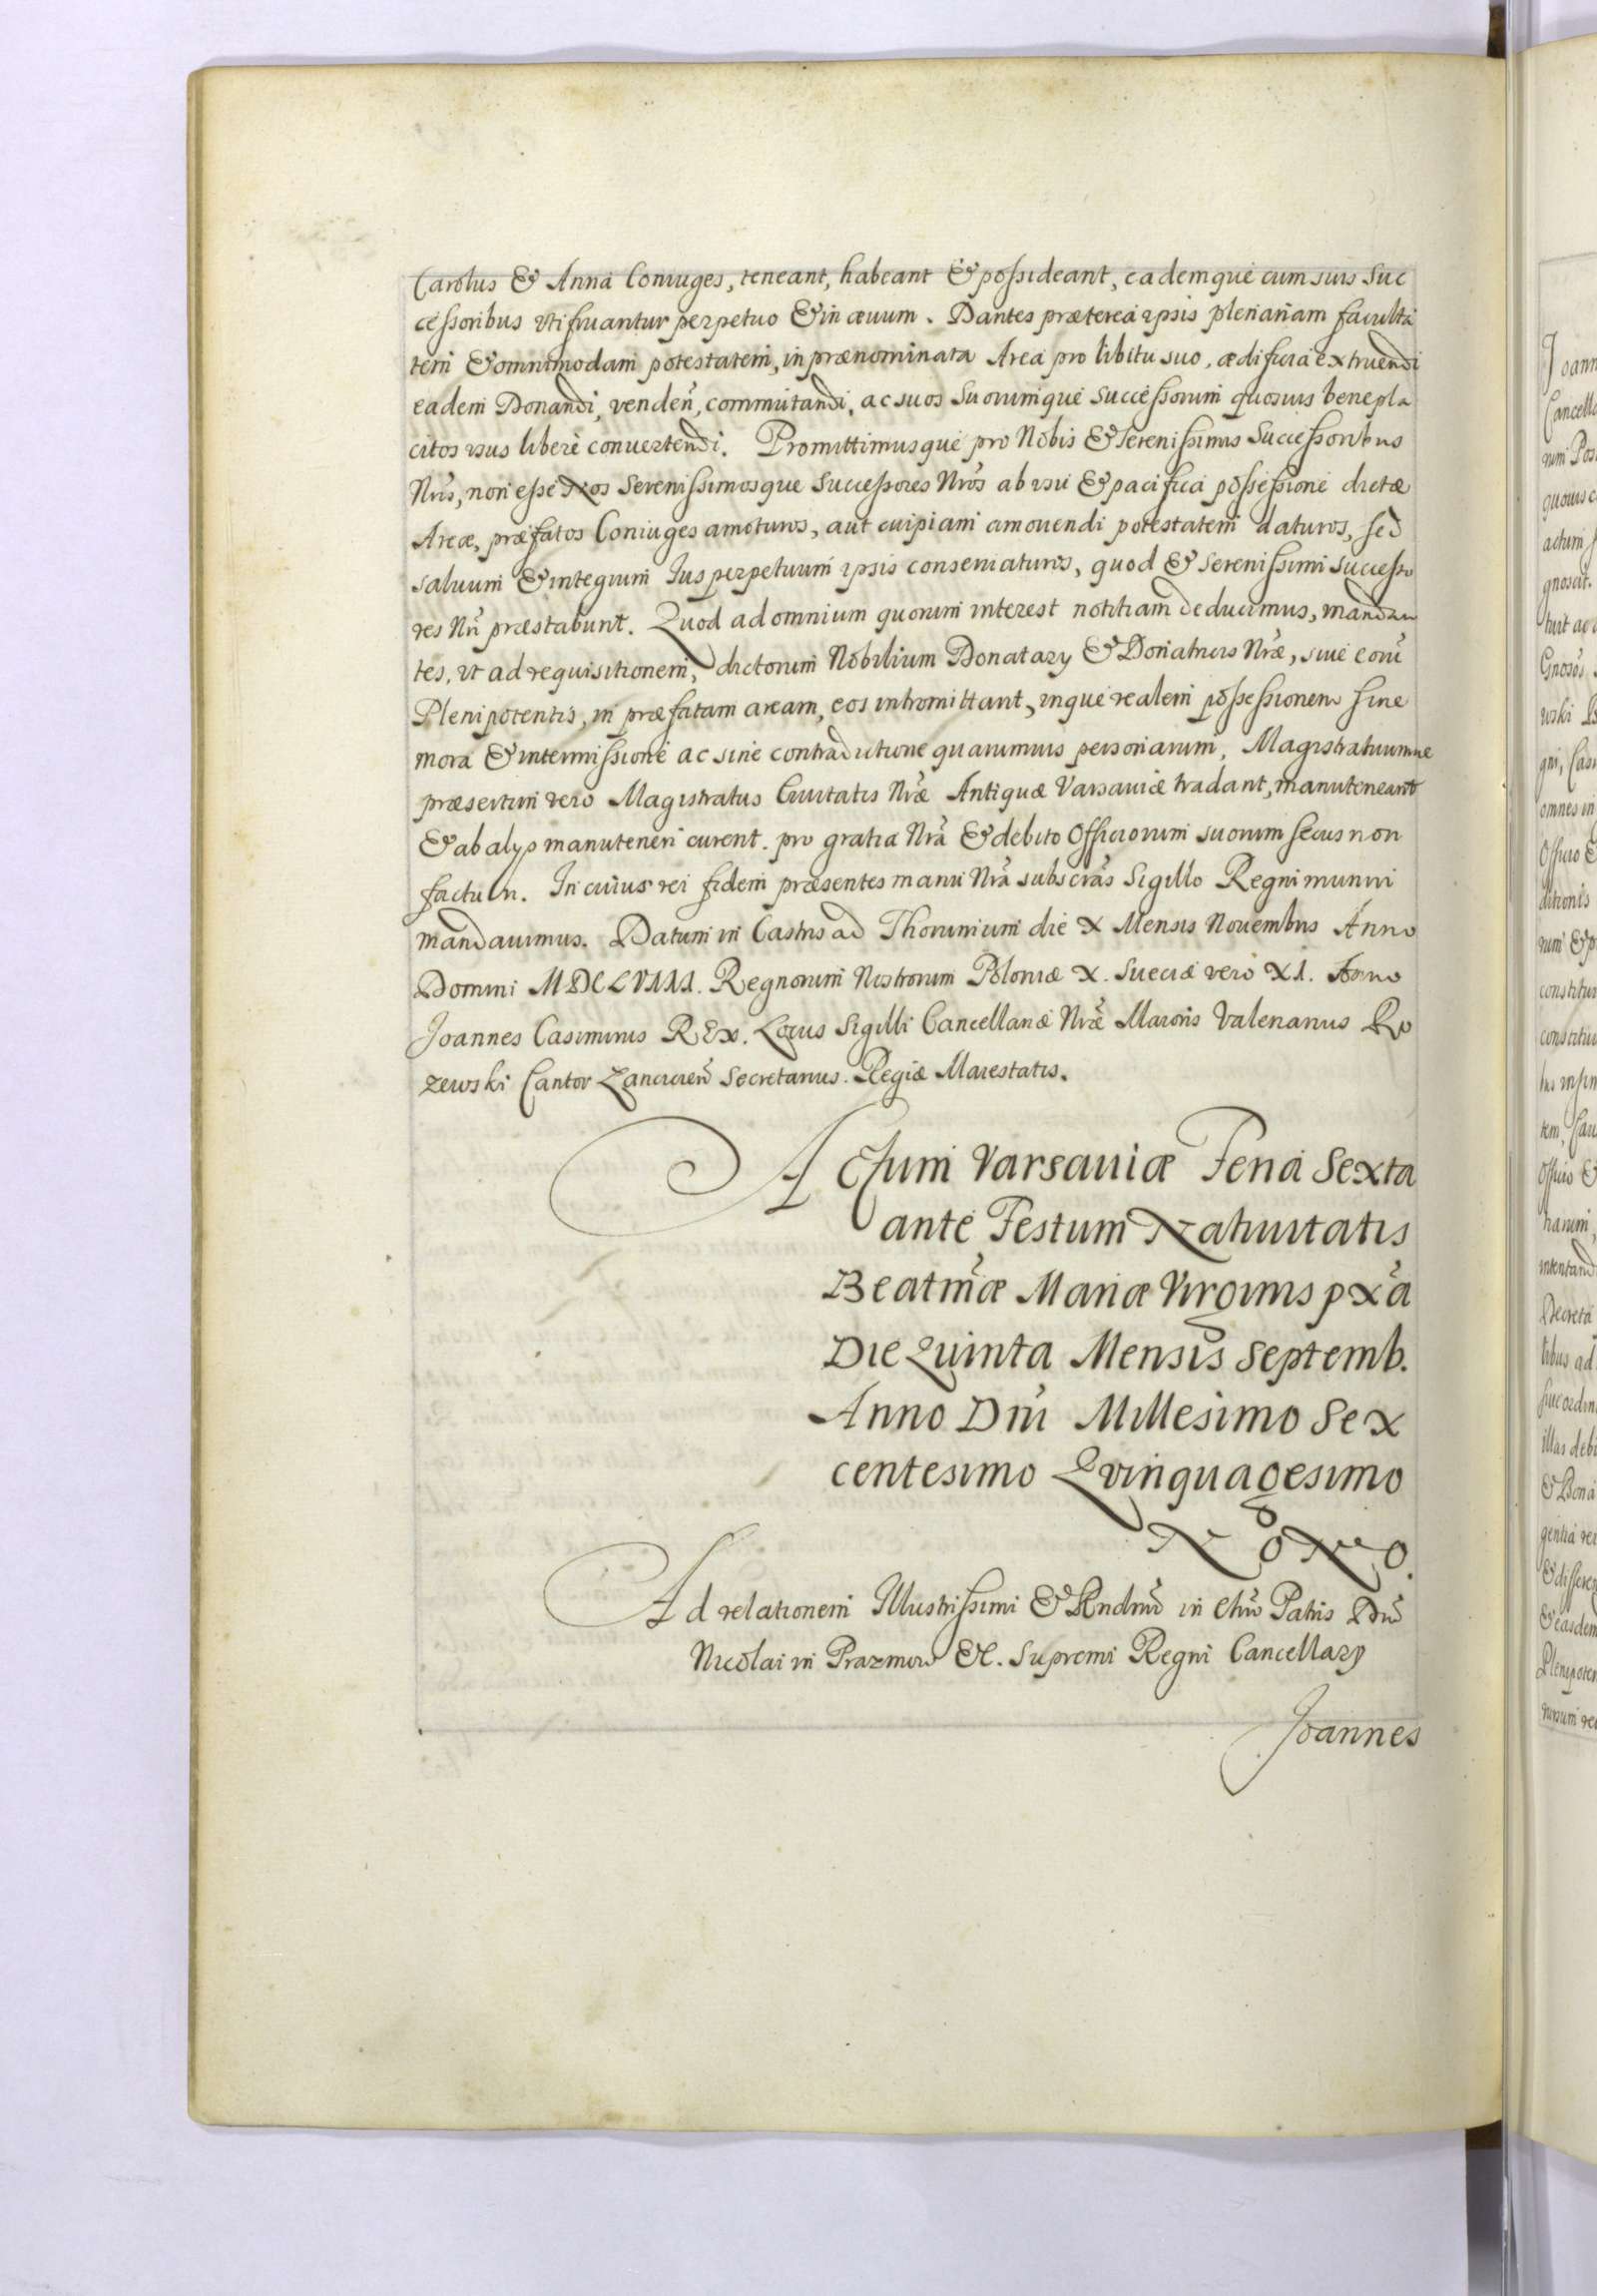 Carolus & Anna Coniuges, teneant, habeant & possideant, eademque cum suis Suc
cessoribus vtifruantur perpetuo & in æuum. Dantes præterea ipsis plenariam faculta
tem & omnimodam potestatem, in prænominata Area pro libitu suo, ædificia extruendi
eadem Donandi, venden̄, commutandi, ac suos Suorumque Successorum quosuis benepla
citos vsus liberè conuertendi. Promittimusque pro Nobis & Serenissimis Successoribus
Nr̄is, non esse Nos Serenissimosque Successores Nr̄os ab vsu & pacifica possessione dictæ
Areæ, præfatos Coniuges amoturos, aut cuipiam amouendi potestatem daturos, sed
saluum & integrum Ius perpetuum ipsis conseruaturos, quod & Serenissimi Successo
res Nr̄i præstabunt. Quod ad omnium quorum interest notitiam deducimus, mandan
tes, vt ad requisitionem, dictorum Nobilium Donatary & Donatricis Nr̄æ, siue eorū
Plenipotentis, in præfatam aream, eos intromittant, inque realem possessionem sine
mora & intermissione ac sine contradictione quarumuis personarum, Magistratuumue
præsertim vero Magistratus Ciuitatis Nr̄æ Antiquæ Varsauiæ tradant, manuteneant
& ab alys manuteneri curent. pro gratia Nr̄a & debito Officiorum suorum secus non
factu ri. In cuius rei fidem præsentes manu Nr̄a subscr̄as Sigillo Regni muniri
mandauimus. Datum in Castris ad Thorunium die X Mensis Nouembris Anno
Domini MDCLVIII. Regnorum Nostrorum Poloniæ X. Sueciæ vero XI. Anno
Joannes Casimirus REx. Locus Sigilli Cancellariæ Nr̄æ Maioris Valerianus Ro
zewski Cantor Lanciciēn Secretarius. Regiæ Maiestatis.
ACtum Varsauiæ Feria Sexta
ante Festum Natiuitatis
Beatm̄æ Mariæ Virginis px̄a
Die Quinta Mensis Septemb.
Anno Dn̄i Millesimo Sex
centesimo Qvinquagesimo
NoNo.
Ad relationem Illustrissimi & Rndm̄i in Chr̄o Patris Dn̄i
Nicolai in Prazmow &c. Supremi Regni Cancellary
Joannes